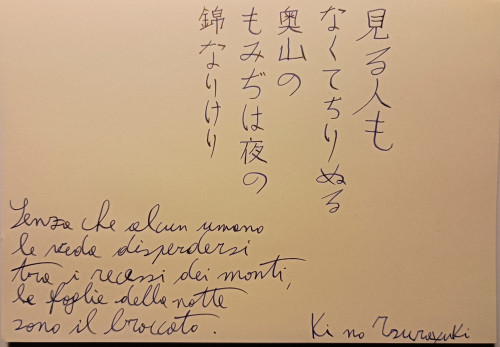 見る人も
なくてちりぬる
奥山の
もみぢは夜の
錦なりけり
Senza che alcun umano
le veda disperdersi
tra i recessi dei monti,
le foglie della notte
sono il broccato.
Ki no Tsurayuki